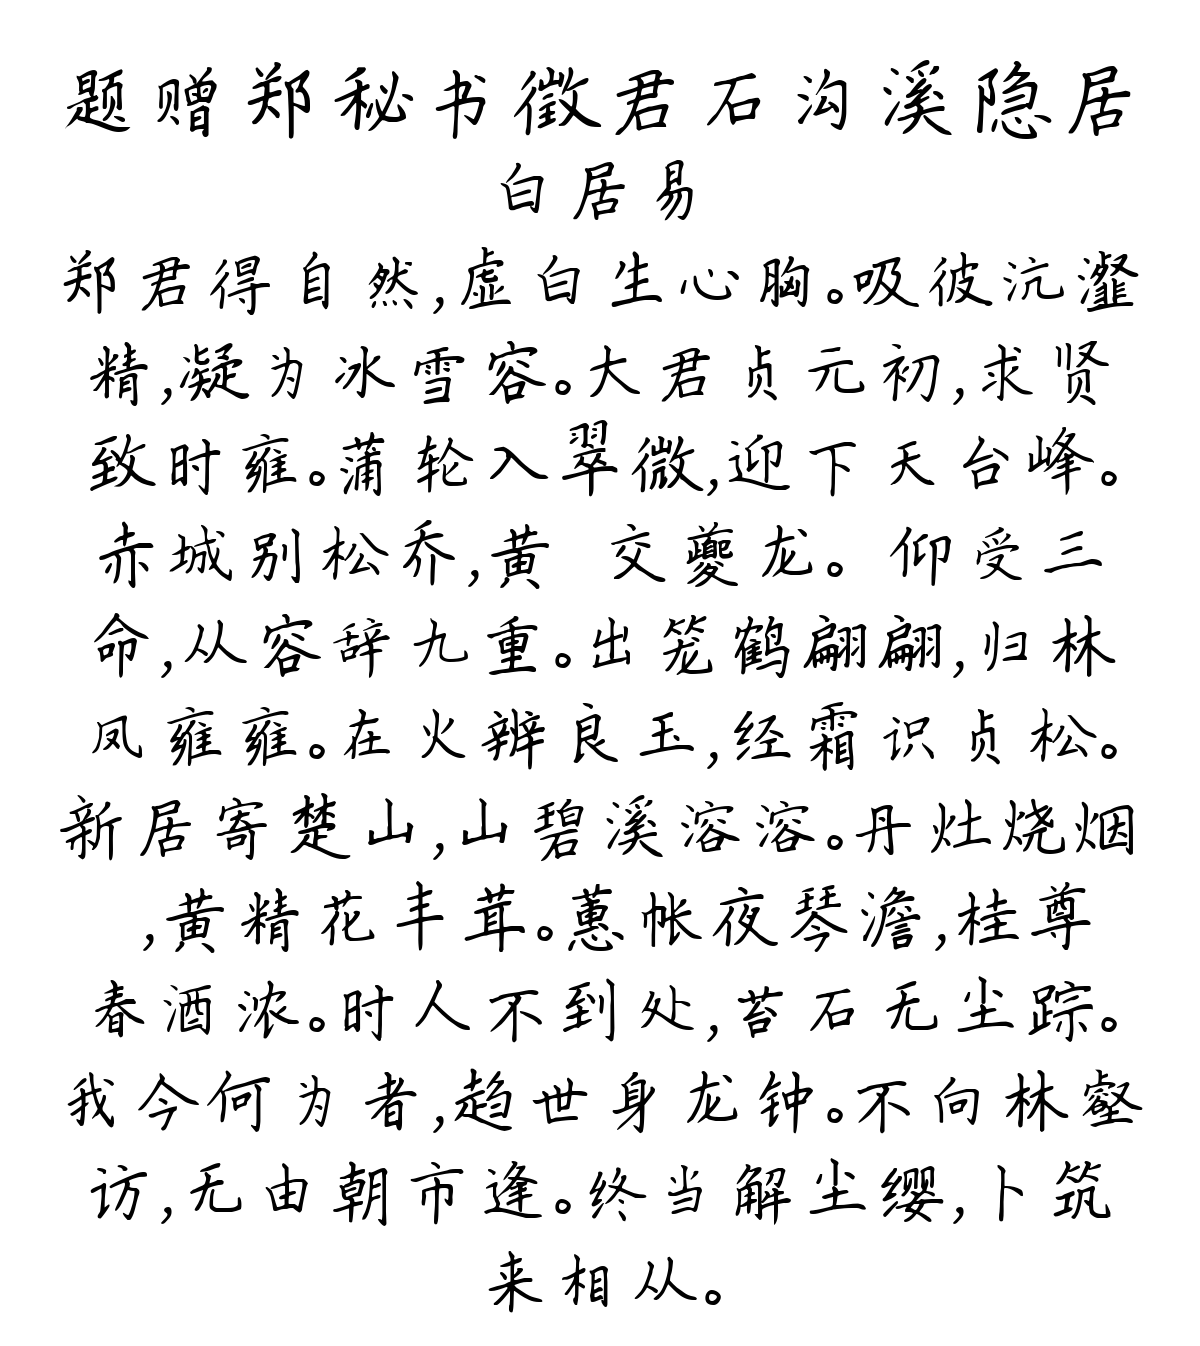 题赠郑秘书徵君石沟溪隐居
白居易
郑君得自然,虚白生心胸。吸彼沆瀣
精,凝为冰雪容。大君贞元初,求贤
致时雍。蒲轮入翠微,迎下天台峰。
赤城别松乔,黄 交夔龙。仰受三
命,从容辞九重。出笼鹤翩翩,归林
凤雍雍。在火辨良玉,经霜识贞松。
新居寄楚山,山碧溪溶溶。丹灶烧烟
,黄精花丰茸。蕙帐夜琴澹,桂尊
春酒浓。时人不到处,苔石无尘踪。
我今何为者,趋世身龙钟。不向林壑
访,无由朝市逢。终当解尘缨,卜筑
来相从。